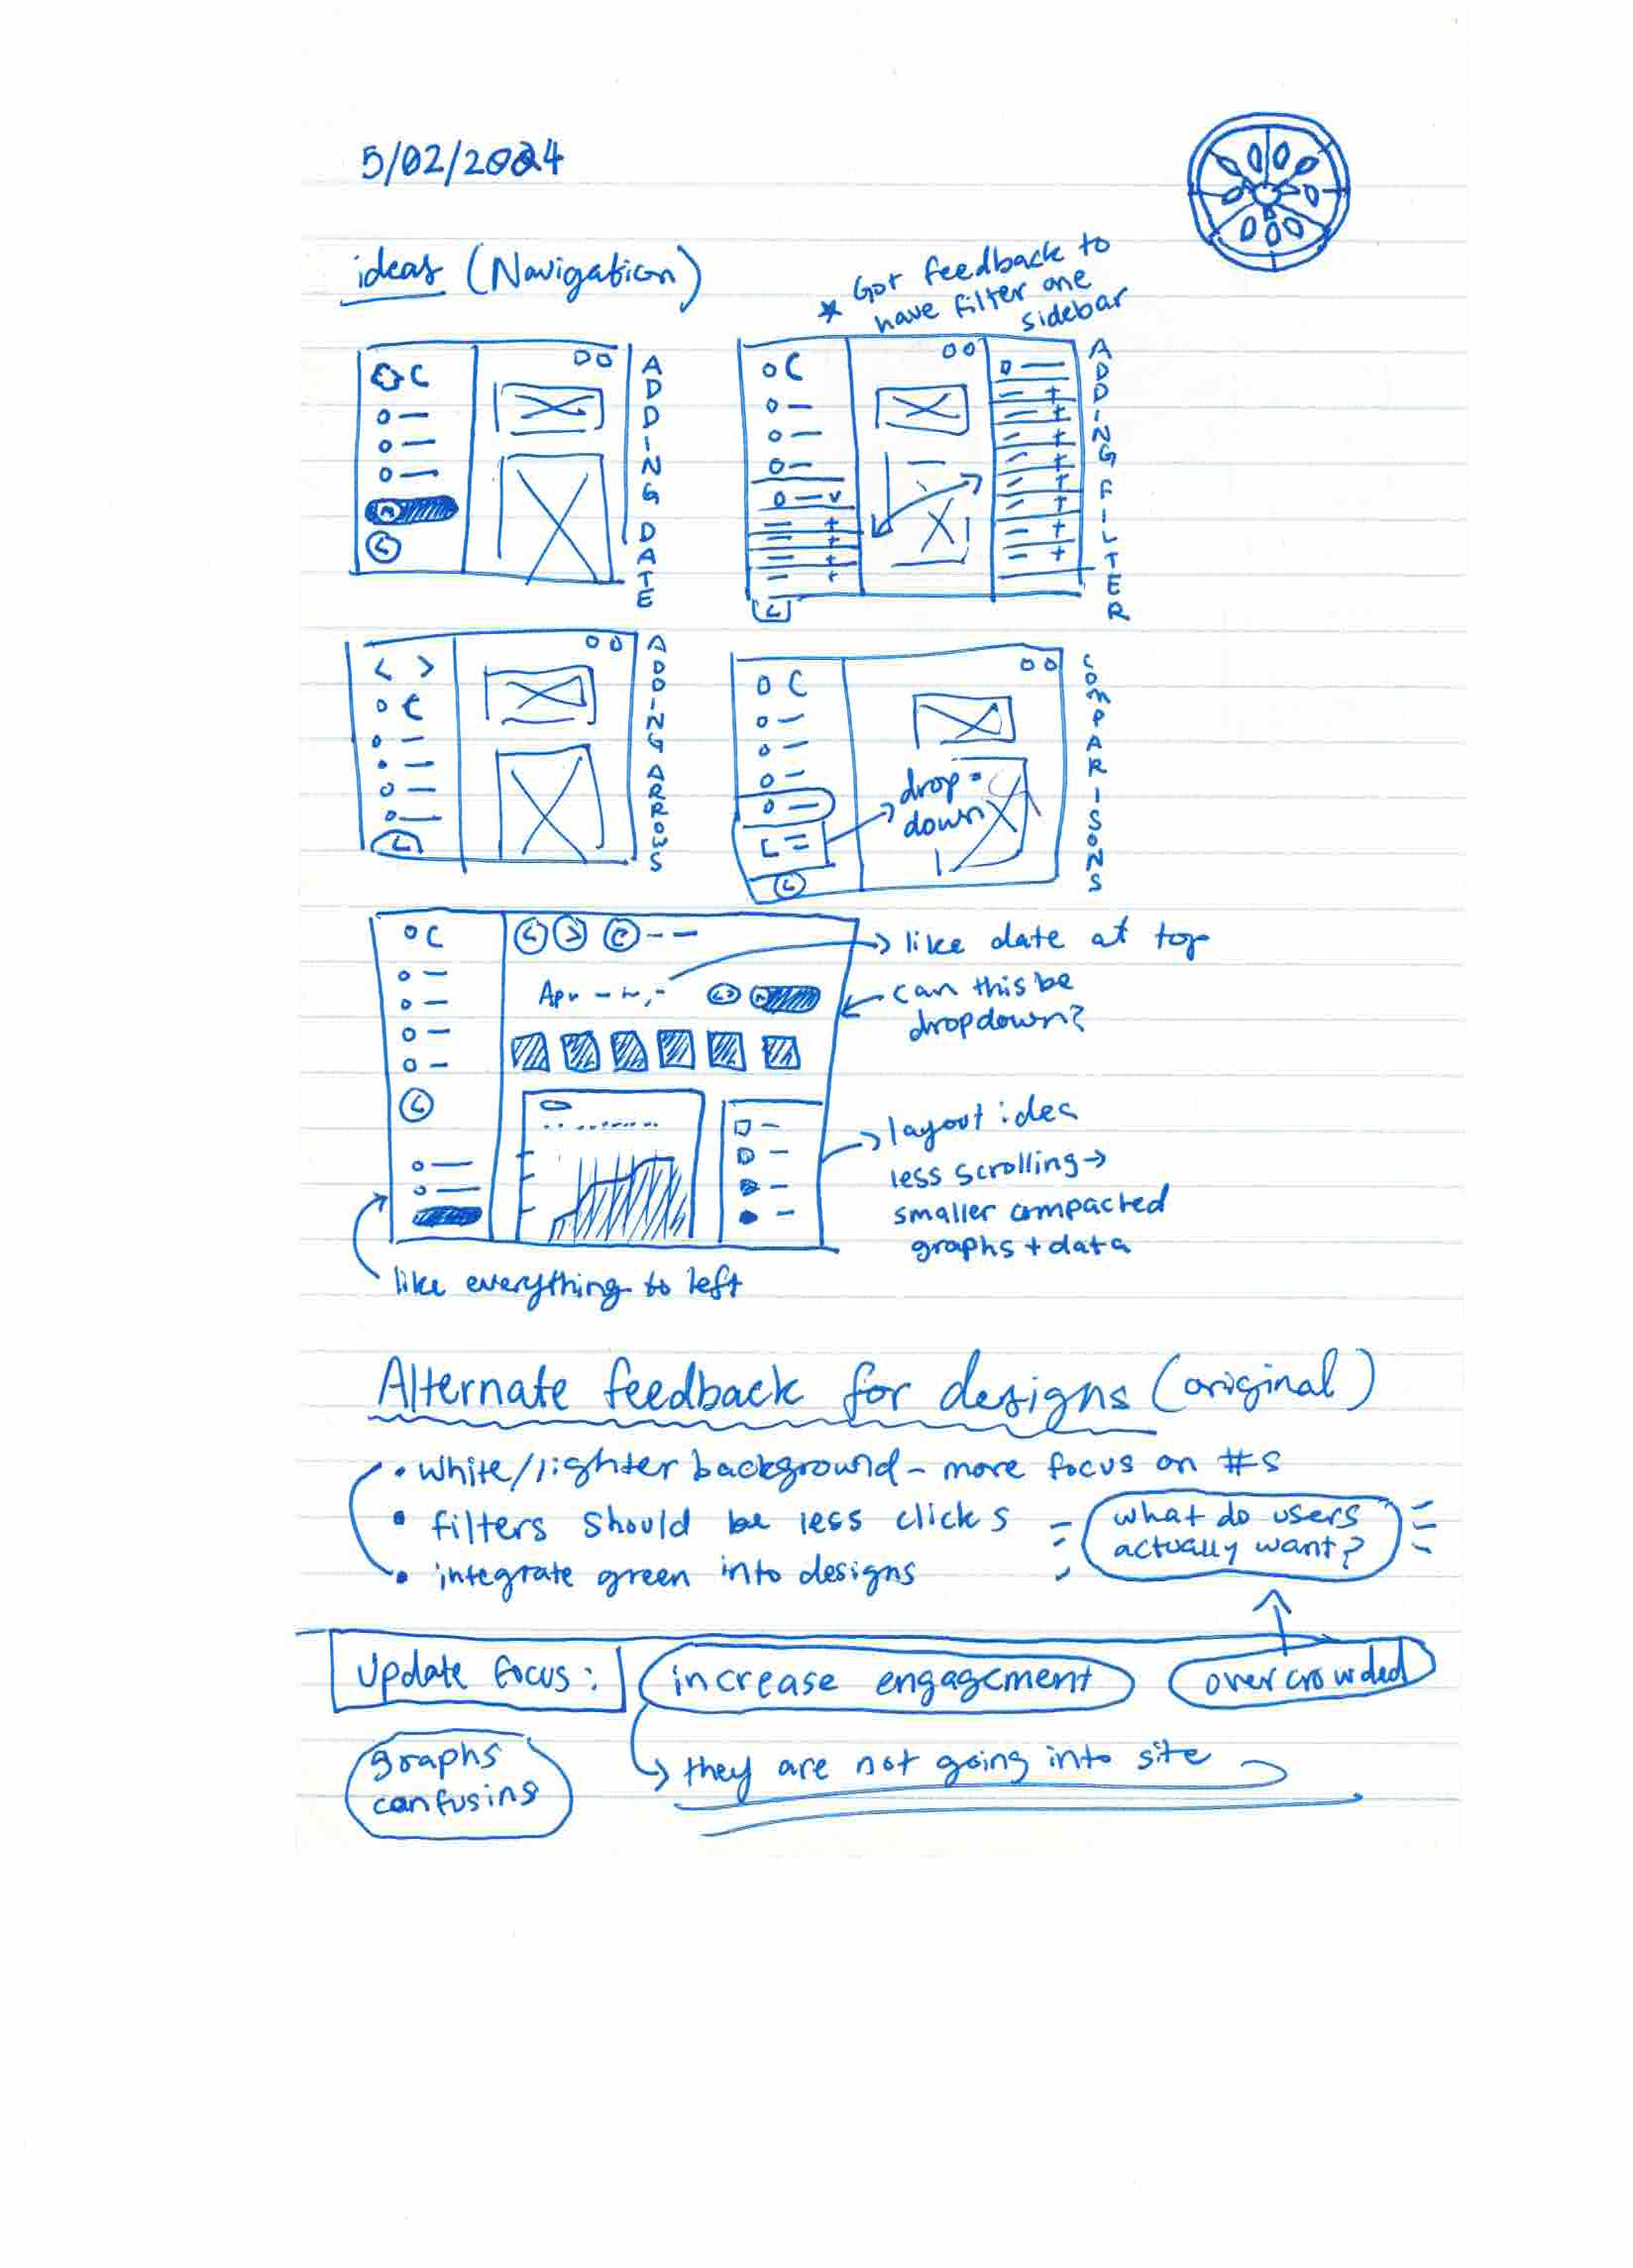 5/02/2024
ideas (Navigation)
* Got feedback to
have filter one
sidebar
ADDING DATE
ADDING FILTER
ADDING ARROWS
COMPARISONS
drop-
down
like date at top
Apr
can this be
dropdown?
layout idea
less scrolling →
smaller compacted
graphs + data
like everything to left
Alternate feedback for designs (original)
• white/lighter background - more focus on #s
• filters should be less clicks
what do users
actually want?
• integrate green into designs
Update focus: increase engagement overcrowded
graphs
confusing
they are not going into site